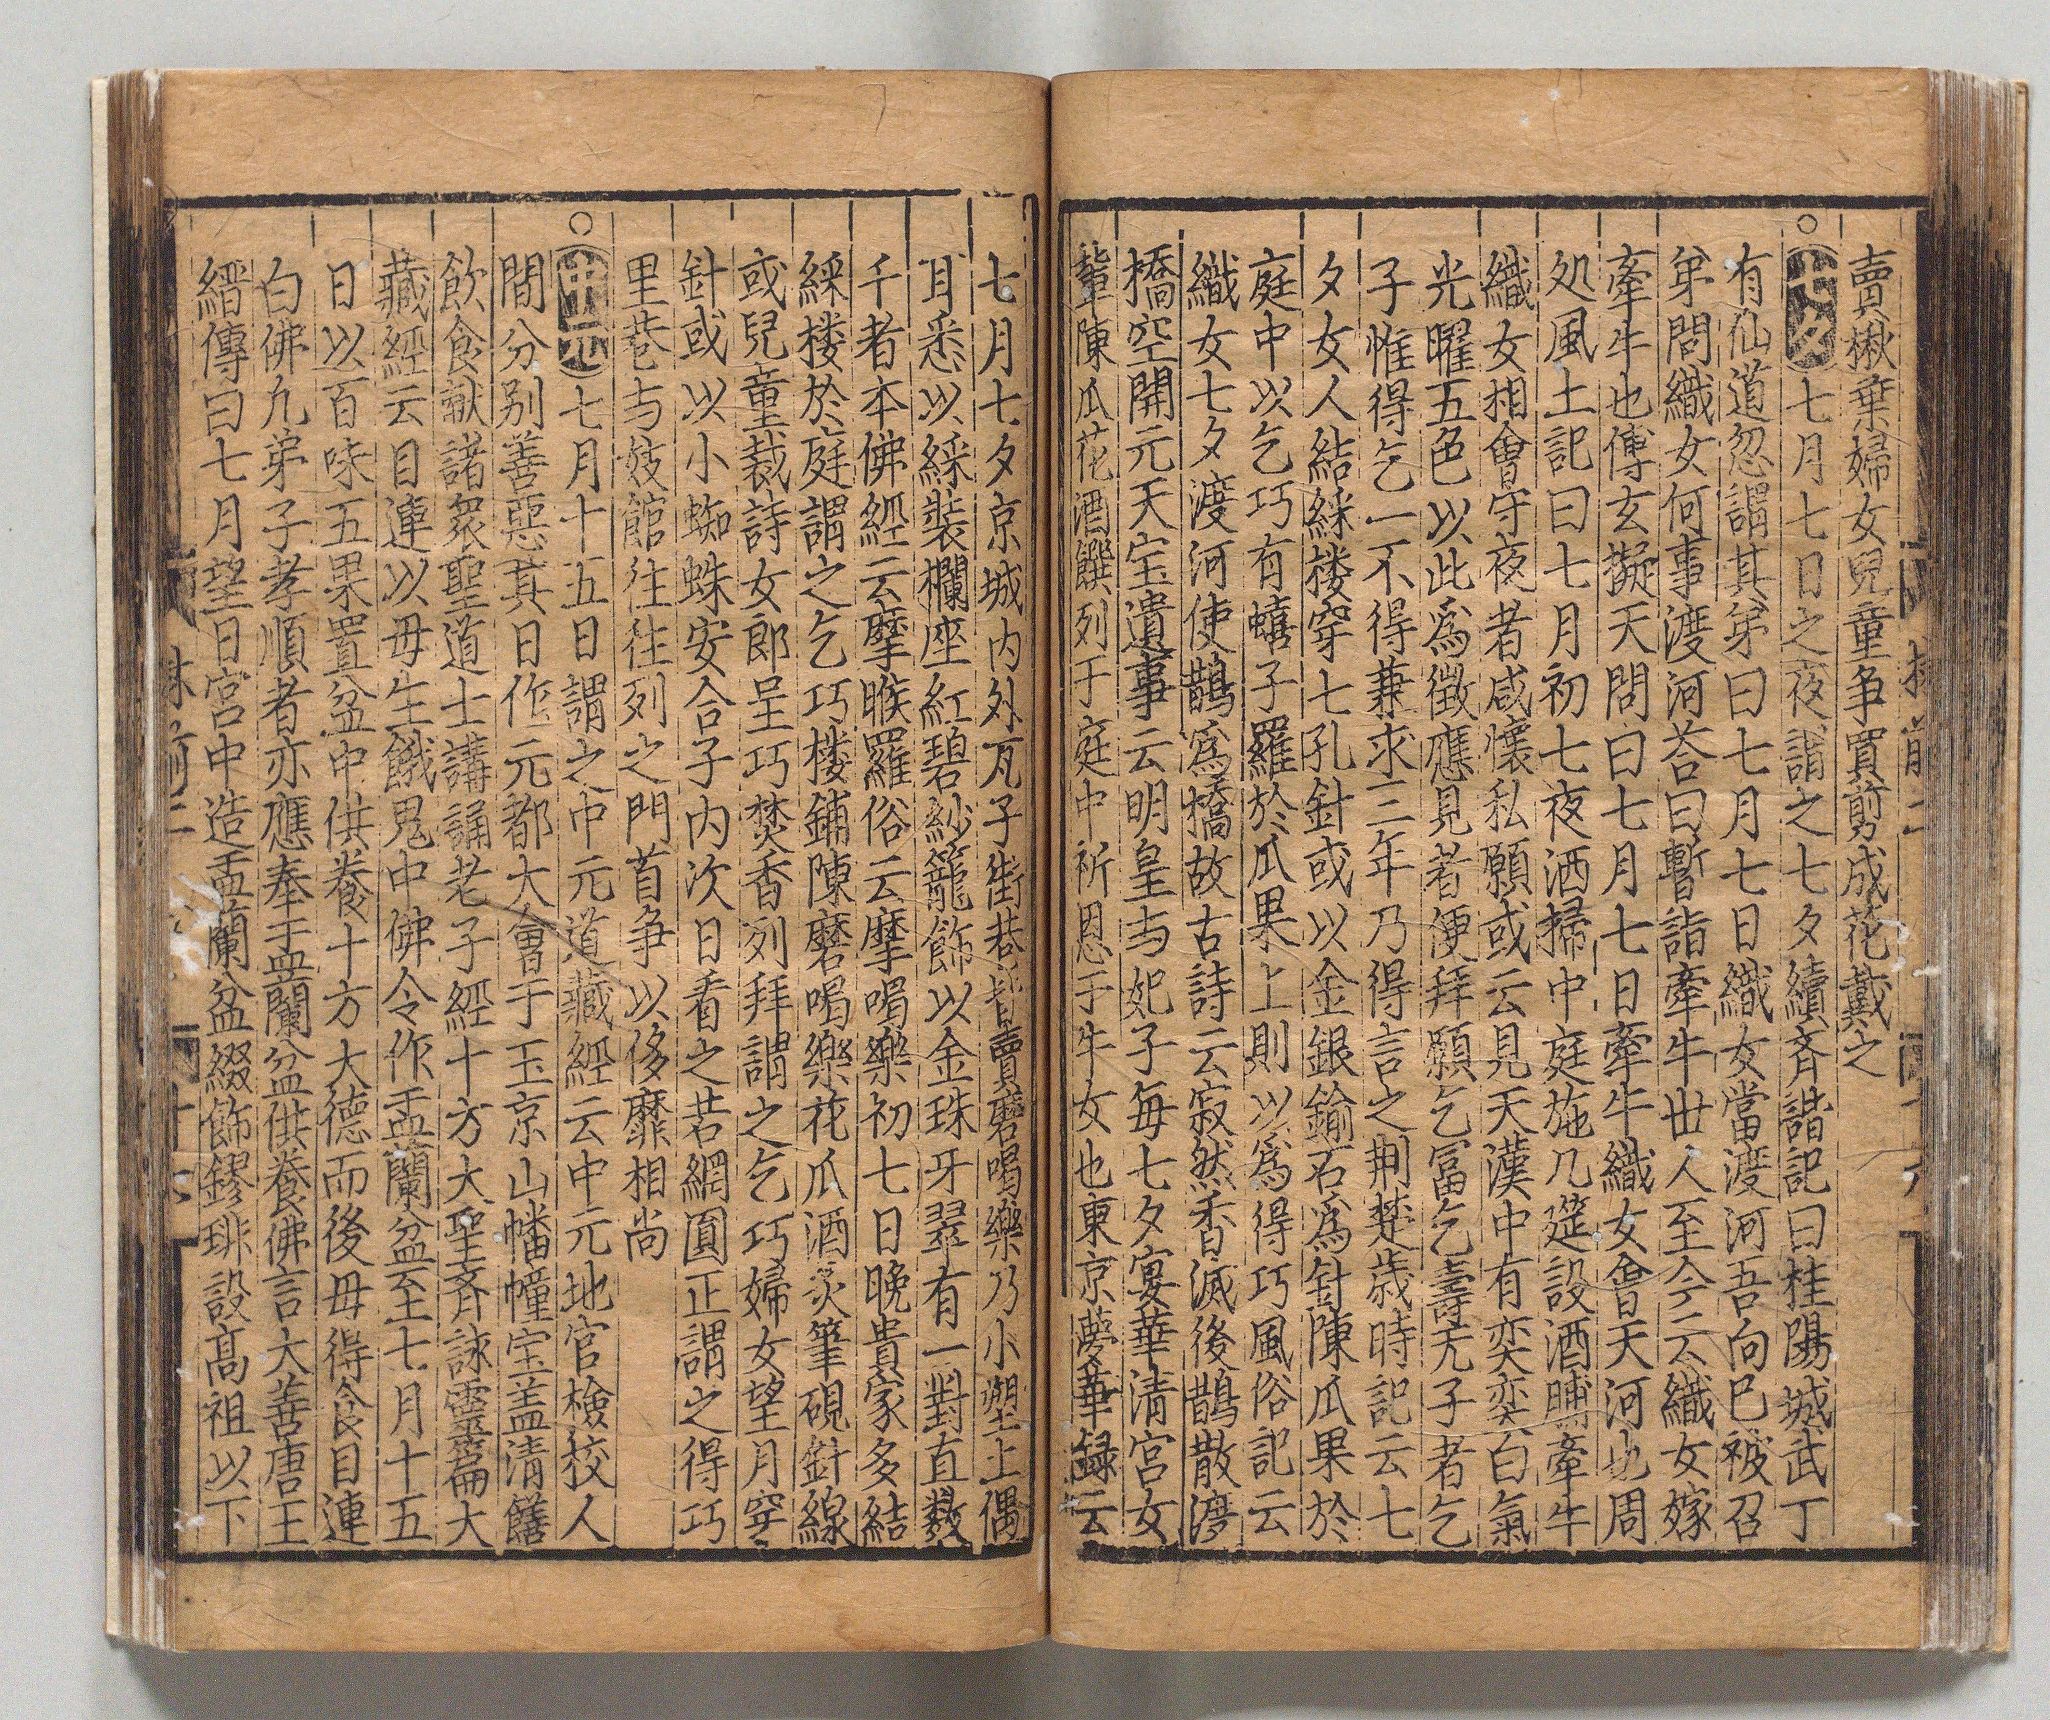 賣楸葉婦女兒童争買剪成花戴之
○七夕七月七日之夜謂之七夕續斉諧記曰桂陽城武丁
有仙道忽謂其弟曰七月七日織女當渡河吾向已被召
弟問織女何事渡河荅曰暫詣牽牛世人至今云織女嫁
牽牛也傅玄擬天問曰七月七日牽牛織女會天河也周
処風土記曰七月初七夜洒掃中庭施几筵設酒脯牽牛
織女相會守夜者咸懷私願或云見天漢中有奕奕白氣
光曜五色以此爲徵應見者便拜願乞富乞壽无子者乞
子惟得乞一不得兼求三年乃得言之荆楚歳時記云七
夕女人結綵楼穿七孔針或以金銀鍮石爲針陳瓜果於
庭中以乞巧有蟢子羅於瓜果上則以爲得巧風俗記云
織女七夕渡河使鵲爲橋故古詩云寂然香滅後鵲散渡
橋空開元天宝遺事云明皇与妃子每七夕宴華清宮女
輩陳瓜花酒饌列于庭中祈恩于牛女也東京夢華録云
七月七夕京城内外瓦子街巷皆賣磨喝樂乃小塑土偶
耳悉以綵裝欄座紅碧紗籠飾以金珠牙翠有一對直数
千者本佛經云摩睺羅俗云摩喝樂初七日晩貴家多結
綵楼於庭謂之乞巧楼鋪陳磨喝樂花瓜酒炙筆硯針線
或兒童裁詩女郎呈巧焚香列拜謂之乞巧婦女望月穿
針或以小蜘蛛安合子内次日看之若網圓正謂之得巧
里巷与妓館往往列之門首争以侈靡相尚
○中元七月十五日謂之中元道藏經云中元地官檢校人
間分别善惡其日作元都大會于玉京山幡幢宝盖清饍
飲食献諸衆聖道士講誦老子經十方大聖斉詠靈篇大
藏經云目連以母生餓鬼中佛令作盂蘭盆至七月十五
日以百味五果置盆中供養十方大德而後母得食目連
白佛凡弟子孝順者亦應奉盂蘭盆供養佛言大善唐王
縉傳曰七月望日宮中造盂蘭盆綴飾鏐琲設髙祖以下